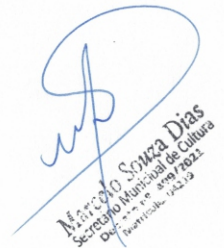 Marcelo Souza Dias
Secretário Municipal de Cultura
Decreto nº 499/2021
Matrícula: